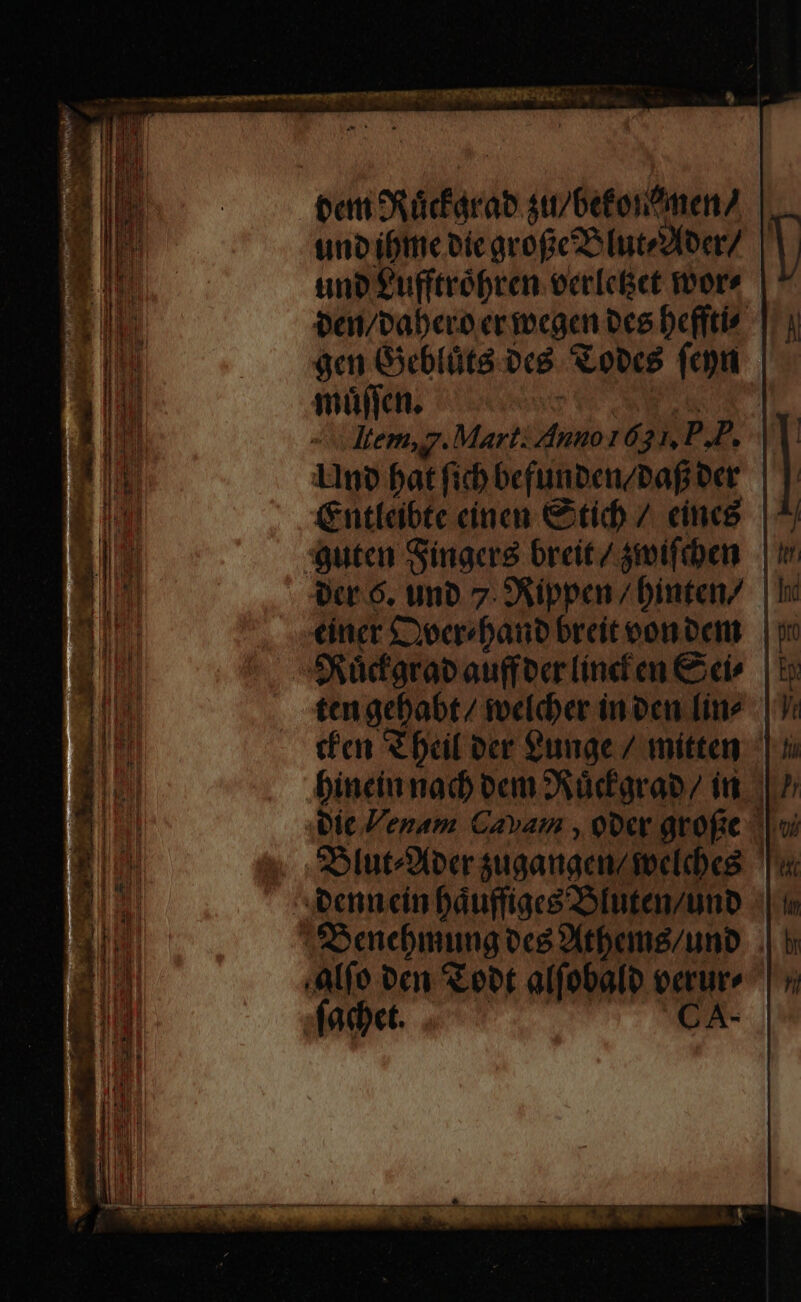 dem Ruͤckgrad zu/bekommen/
und ihme die große Blut⸗Ader/
und Lufftroͤhren verletzet wor⸗
den/dahero er wegen des heffti⸗
gen Gebluͤts des Todes ſeyn
muͤſſen.
Item, 7. Mart. Anno 1631. P. P.
Und hat ſich befunden/daß der
Entleibte einen Stich / eines
guten Fingers breit / zwiſchen
der 6. und 7. Rippen / hinten/
einer Qver⸗hand breit von dem
Ruͤckgrad auff der lincken Sei⸗
ten gehabt / welcher in den lin⸗
cken Theil der Lunge / mitten
hinein nach dem Ruͤckgrad / in
die Venam Cavam, oder große
Blut⸗Ader zugangen/welches
denn ein haͤuffiges Bluten/und
Benehmung des Athems/und
alſo den Todt alſobald verur⸗
ſachet.
CA-